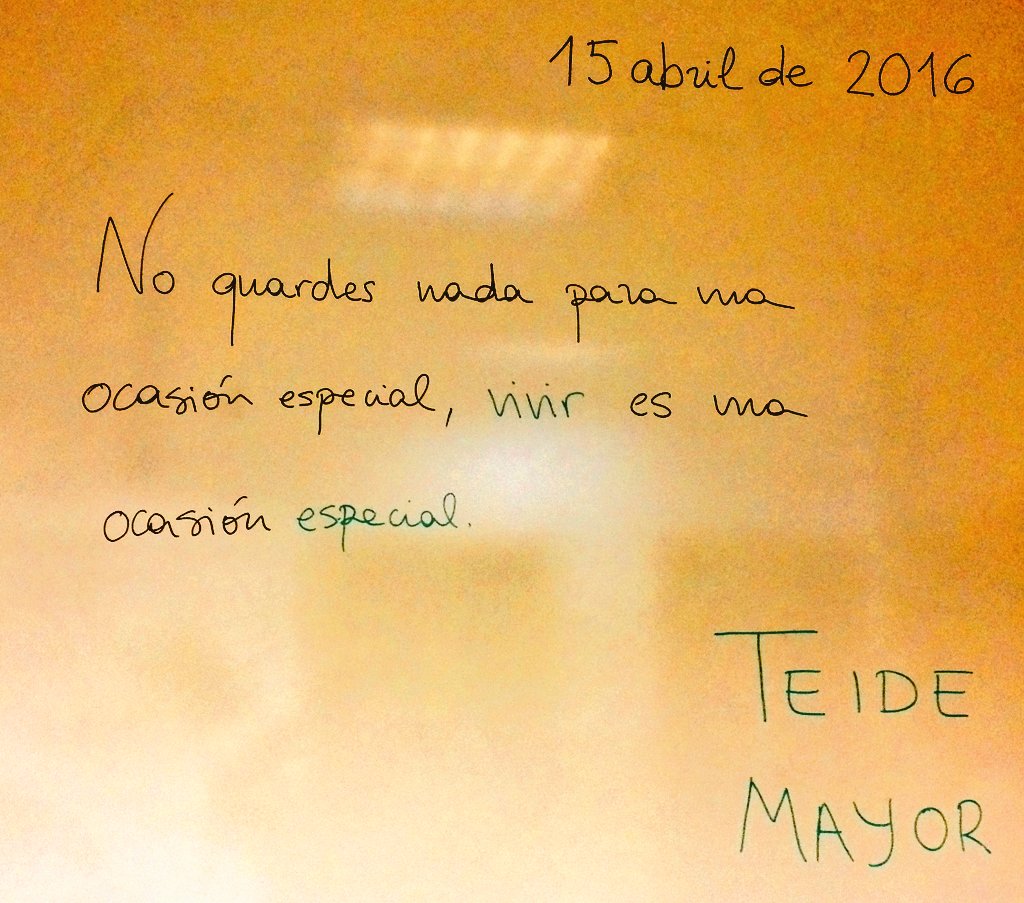 15 abril de 2016
No guardes nada para una
ocasión especial, vivir es una
ocasión especial.
TEIDE
MAYOR